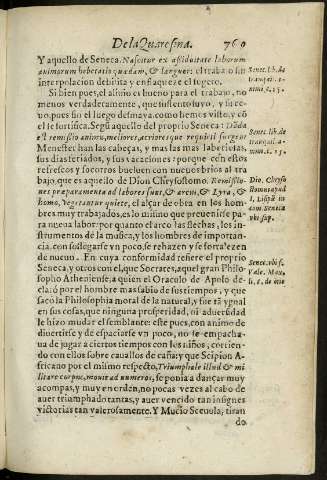 De la Quaresma. 760
Y aquello de Seneca. Nascitur ex assiduitate laborum
animorum hebetatio quædam, & languor: el trabajo sin
interpolacion debilita y enflaqueze el sugeto.
Si bien pues, el asueto es bueno para el trabajo, no
menos verdaderamente, que sustento suyo, y sirece
uo, pues sin el luego desmaya, como hemos visto, y cō
el se fortifica. Segū aquello del proprio Seneca: Dāda
est remissio animis, meliores, acrioresque requieti surgēt
Menester han las cabeças, y mas las mas laberiosas,
sus dias feriados, y sus vacaciones: porque con estos
refrescos y socorros bueluen con nueuos brios al tra
bajo, que es aquello de Dion Chrysostomo. Remissio-
nes præparamenta ad labores sunt, & arcus, & Lyra, &
homo, Vegetantur quiete, el alçar de obra en los hom-
bres muy trabajados, es lo mismo que preuenirse pa-
ra nueua labor: por quanto el arco las flechas, los ins-
trumentos de la musica, y los hombres de importan-
cia, con sossegarse vn poco, se rehazen y se fortalezen
de nueuo. En cuya conformidad refiere el proprio
Seneca, y otros con el, que Socrates, aquel gran Philo-
sopho Atheniense, a quien el Oraculo de Apolo de-
claró por el hombre mas sabio de sus tiempos, y que
saco la Philosophia moral de la natural, y fue tā ygual
en sus cosas, que ninguna prosperidad, ni aduersidad
le hizo mudar el semblante: este pues, con animo de
diuertirse y de espaciarse vn poco, no se empacha-
ua de jugar a ciertos tiempos con los niños, corrien-
do con ellos sobre cauallos de caña: y que Scipion A-
fricano por el mismo respecto, Triumphale illud & mi
litare corpus, mouit ad numeros, se ponia a dançar muy
a compas, y muy en orden, no pocas vezes al cabo de
auer triumphado tantas, y auer vencido tan insignes
victorias tan valerosamente. Y Mucio Sceuola, tiran
do
Senec. lib. de
tranquil. a-
nimi, c. 15.
Senec. lib. de
tranquil. a-
nimi, c. 15.
Dio. Chryso
Senec. vbi s.
Vale. Max.